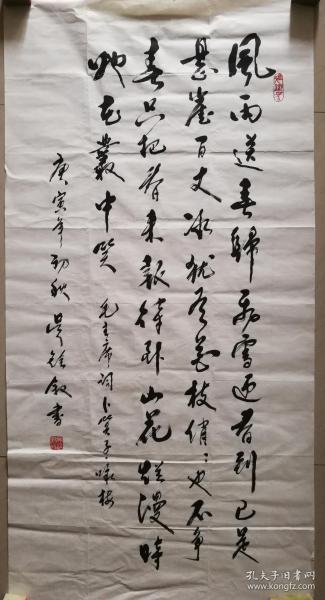 風雨送春歸飛雪迎春到已是
懸崖百丈冰猶有花枝俏俏也不爭
春只把春來報待到山花爛漫時
她在叢中笑 毛主席词卜算子咏梅
庚寅年初秋 吳 書
孔夫子旧书网
www.kongfz.com